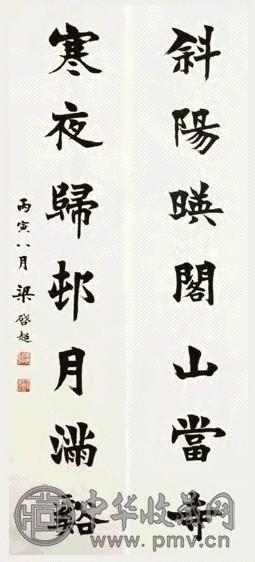 斜陽暎閣山當寺
寒夜歸邨月滿谿
丙寅八月 梁啓超
中华收藏网
www.pmv.cn